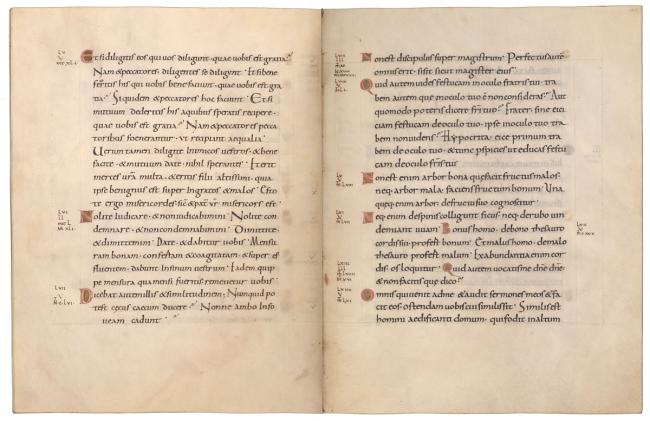 Et si diligitis eos qui vos diligunt· quae vobis est gratia·
Nam & peccatores· diligentes se diligunt· Et si bene
feceritis his qui vobis bene faciunt· quae vobis est gra
tia· Siquidem & peccatores hoc faciunt· Et si
mutuum dederitis his a quibus speratis recipere·
quae vobis est gratia· Nam & peccatores pecca
toribus foenerantur· ut recipiant aequalia·
Verum tamen diligite inimicos vestros· & bene
facite· & mutuum date· nihil sperantes· & erit
merces vestra multa· & eritis filii altissimi· quia
ipse benignus est super ingratos & malos· Esto
te ergo misericordes sic & pat vr misericors est·
Nolite iudicare· & non iudicabimini· Nolite con
demnare· & non condemnabimini· Dimittite·
& dimittemini· Date· & dabitur vobis· Mensu
ram bonam· confersam & coagitatam· & super ef
fluentem· dabunt in sinum vestrum· Eadem quip
pe mensura qua mensi fueritis remetietur vobis·
Dicebat autem illis & similitudinem· Numquid po
test cecus caecum ducere· Nonne ambo in fo
veam cadunt·
Non est discipulus super magistrum· Perfectus aute
omnis erit· si sit sicut magister eius·
Quid autem vides festucam in oculo fratris tui· tra
bem autem quae in oculo tuo e non consideras· Aut
quomodo poteris dicere fri tuo· Frater sine eici
am festucam de oculo tuo· ipse in oculo tuo tra
bem non videns· Hypocrita· eice primum tra
bem de oculo tuo· & tunc pspicies ut educas festu
cam de oculo fris tui·
Non est enim arbor bona quae facit fructus malos·
neq· arbor mala· faciens fructum bonum· Una
quaeq· enim arbor· de fructu suo cognoscitur·
Neq· enim de spinis colligunt ficus· neq· de rubo vin
demiant uuam· Bonus homo· de bono thesauro
cordis sui· profert bonum· Et malus homo· de malo
thesauro profert malum· Ex abundantia enim cor
dis· os loquitur· Quid autem vocatis me dne dne·
& non facitis quae dico·
Omnis qui venit ad me· & audit sermones meos & fa
cit eos· ostendam vobis cui similis sit· Similis est
homini aedificanti domum· qui fodit in altum